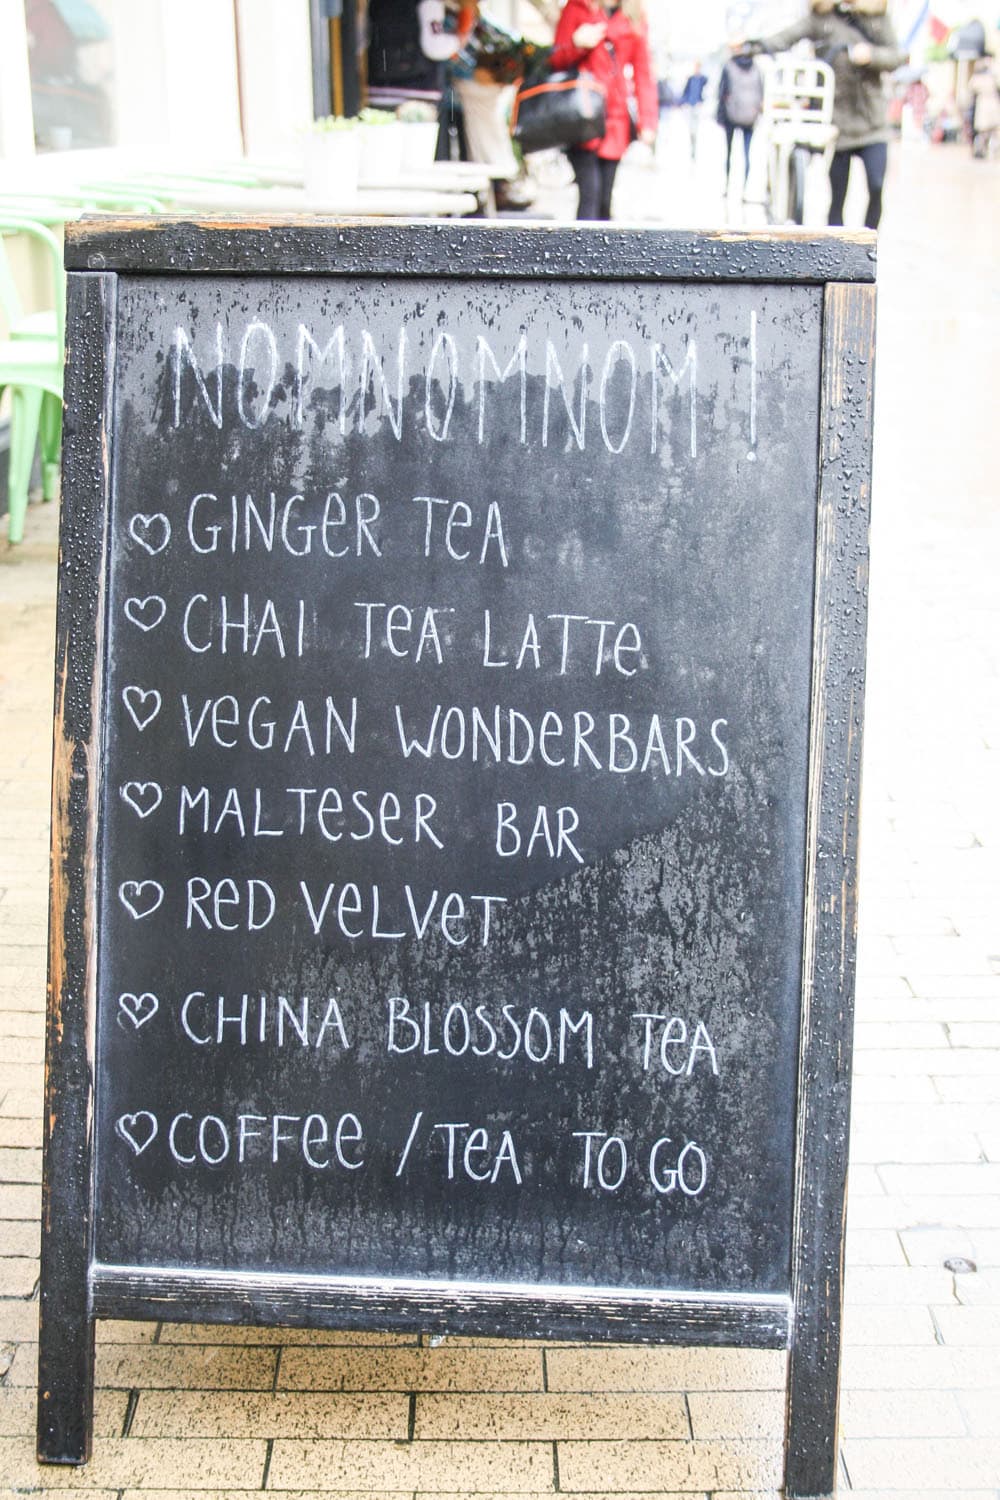 NOMNOMNOM!
♡ GINGeR TeA
♡ CHAI TeA LATTe
♡ VeGAN WONDeRBARS
♡ MALTeSeR BAR
♡ ReD VeLVeT
♡ CHINA BLOSSOM TeA
♡ COFFee / TeA TO GO